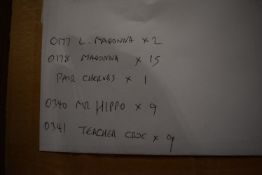 0177 L. MADONNA x 2
0178 MADONNA x 15
PAIR CHERUBS x 1
0340 MR HIPPO x 9
0341 TEACHER CROC x 9